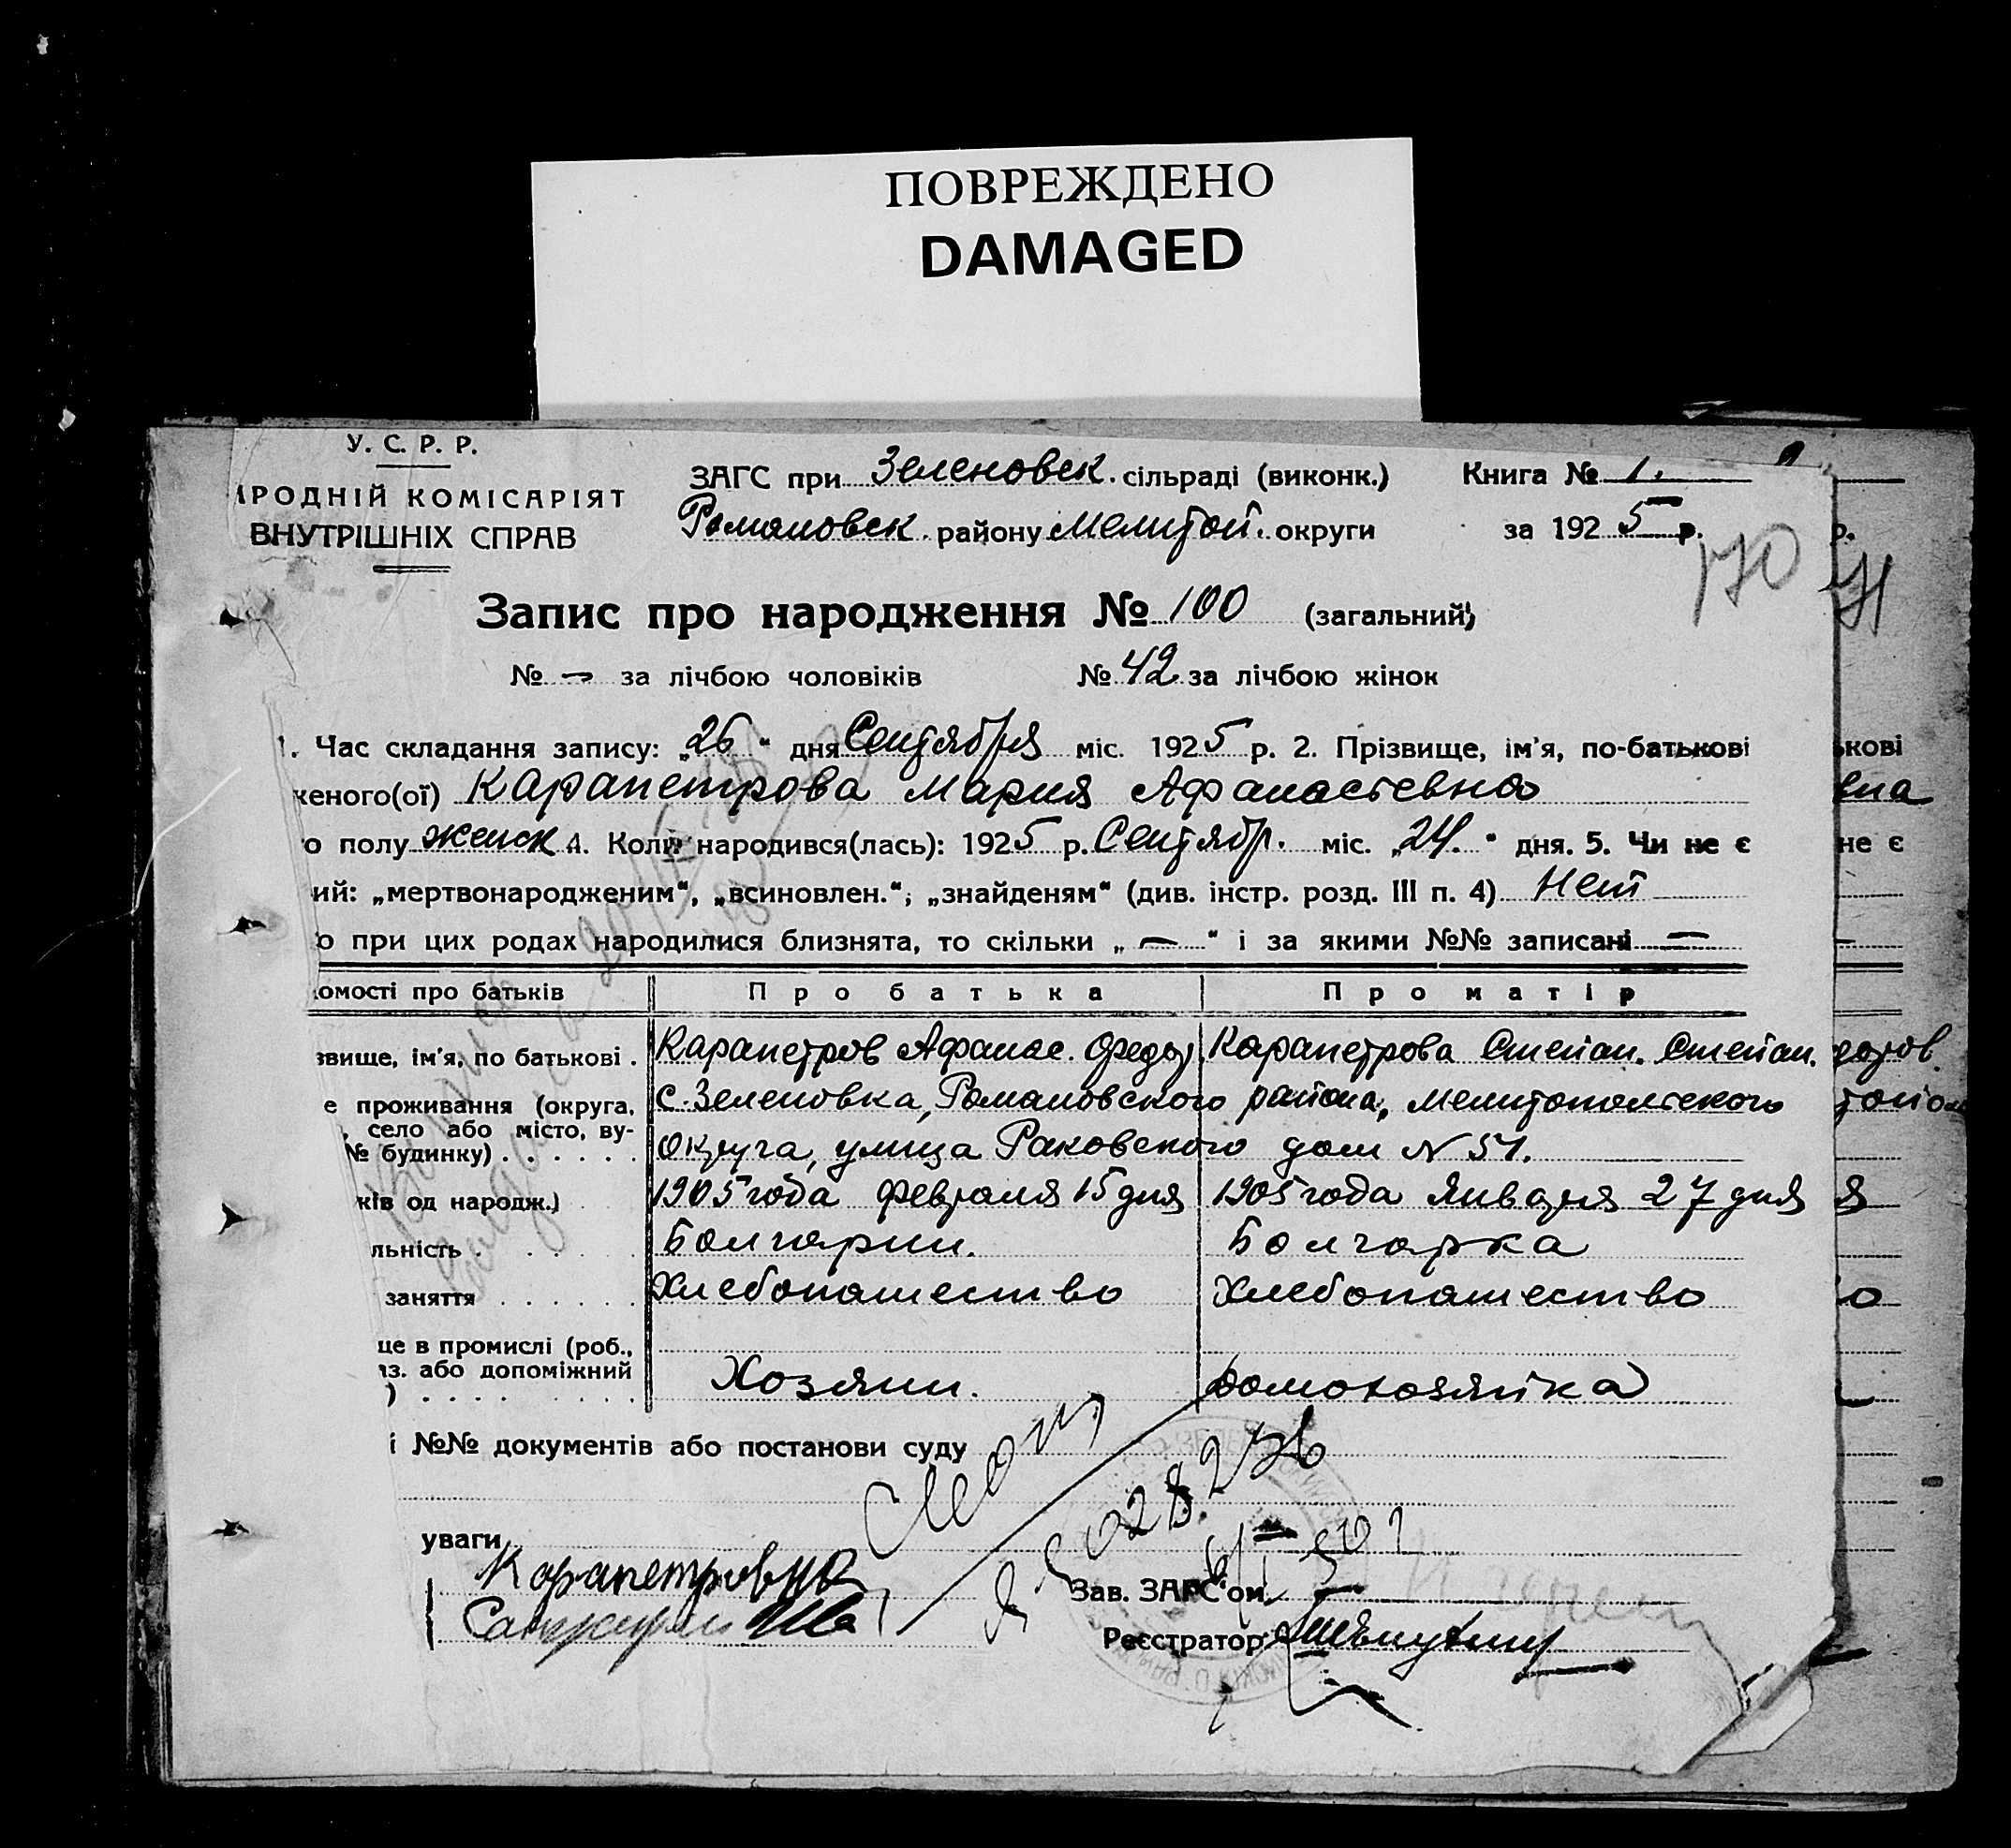 ПОВРЕЖДЕНО
DAMAGED
У. С. Р. Р.
АРОДНІЙ КОМІСАРІЯТ
ВНУТРІШНІХ СПРАВ
ЗАГС при Зеленовск. сільраді (виконк.) Книга № 1.
Романовск. району Мелитоп. округи за 1925 р.
170
Запис про народження № 100 (загальний)
№ — за лічбою чоловіків № 42 за лічбою жінок
1. Час складання запису: „26" дня Сентября міс. 1925 р. 2. Прізвище, ім'я, по-батькові
женого(ої) Карапетрова Мария Афанасьевна
о полу женск 4. Коли народився(лась): 1925 р. Сентябр. міс. „24." дня. 5. Чи не є
ий: „мертвонародженим", „всиновлен."; „знайденям" (див. інстр. розд. III п. 4) Нет
о при цих родах народилися близнята, то скільки „ — " і за якими №№ записані —
домості про батьків Про батька Про матір
звище, ім'я, по батькові . Карапетров Афанас. Федот Карапетрова Степан. Степан.
е проживання (округа, с. Зеленовка, Романовского района, Мелитопольского
, село або місто, ву-
№ будинку) . . . . . . Округа, улица Раковского дом N 51.
ків од народж.) 1905 года февраля 15 дня 1905 года Января 27 дня
льність . . . . . Болгарин. Болгарка
заняття . . . . . . Хлебопашество Хлебопашество
ще в промислі (роб.,
аз. або допоміжний
) . . . . . . . . Хозяин. домохозяйка
і №№ документів або постанови суду
уваги
Карапетровна
Зав. ЗАГС'ом
Реєстратор